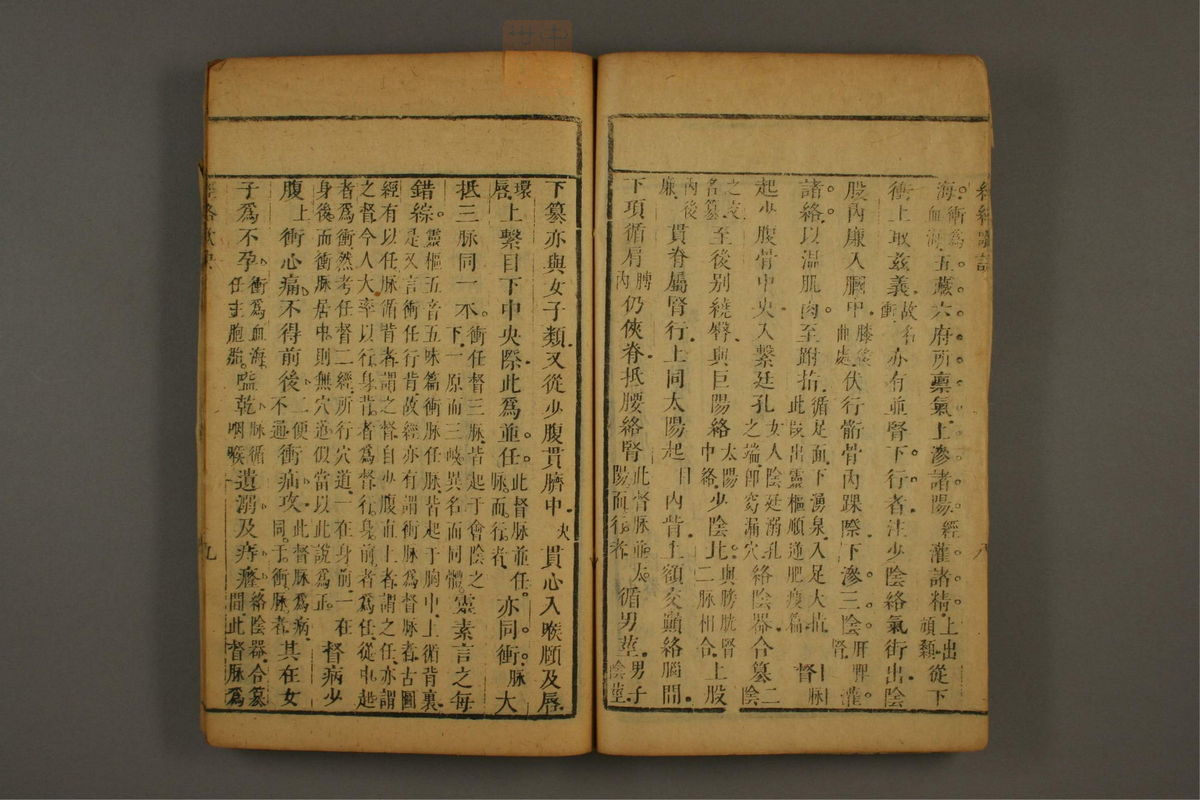 海衝為血海五藏六府所稟氣上滲諸陽經灌諸精上出頏顙從下
衝上取茲義故名衝亦有並腎下行者注少陰絡氣街出陰
股內廉入膕中膝後曲處伏行骭骨內踝際下滲三陰肝脾腎灌
諸絡以溫肌肉至跗指循足面下湧泉入足大指此段出靈樞順逆肥瘦篇督脉
起少腹骨中央入繫廷孔女人陰廷溺孔之端即窈漏穴絡陰器合篡二陰
之交名篡至後別繞臀與巨陽絡太陽中絡少陰比與膀胱腎二脉相合上股
內後廉貫脊屬腎行上同太陽起目內眥上額交顚絡腦間
下項循肩髆內仍俠脊抵腰絡腎此督脉並太陽而行者循男莖男子陰莖
下篡亦與女子類又從少腹貫臍中央貫心入喉頤及唇
環唇上繫目下中央際此為並任此督脉並任脉而行者亦同衝脉大
抵三脉同一本衝任督三脉皆起于會陰之下一原而三岐異名而同體靈素言之每
錯綜靈樞五音五味篇衝脉任脉皆起于胸中上循背裏是又言衝任行背故經亦有謂衝脉為督脉者古圖
經有以任脉循背者謂之督自少腹直上者謂之任亦謂之督今人大率以行身背者為督行身前者為任從中起
者為衝然考任督二經所行穴道一在身前一在身後而衝脉居中則無穴道似當以此說為正督病少
腹上衝心痛不得前後二便不通衝疝攻此督脉為病同于衝脉者其在女
子為不孕衝為血海任主胞胎嗌乾脉循咽喉遺溺及痔癃絡陰器合篡間此督脉為
九